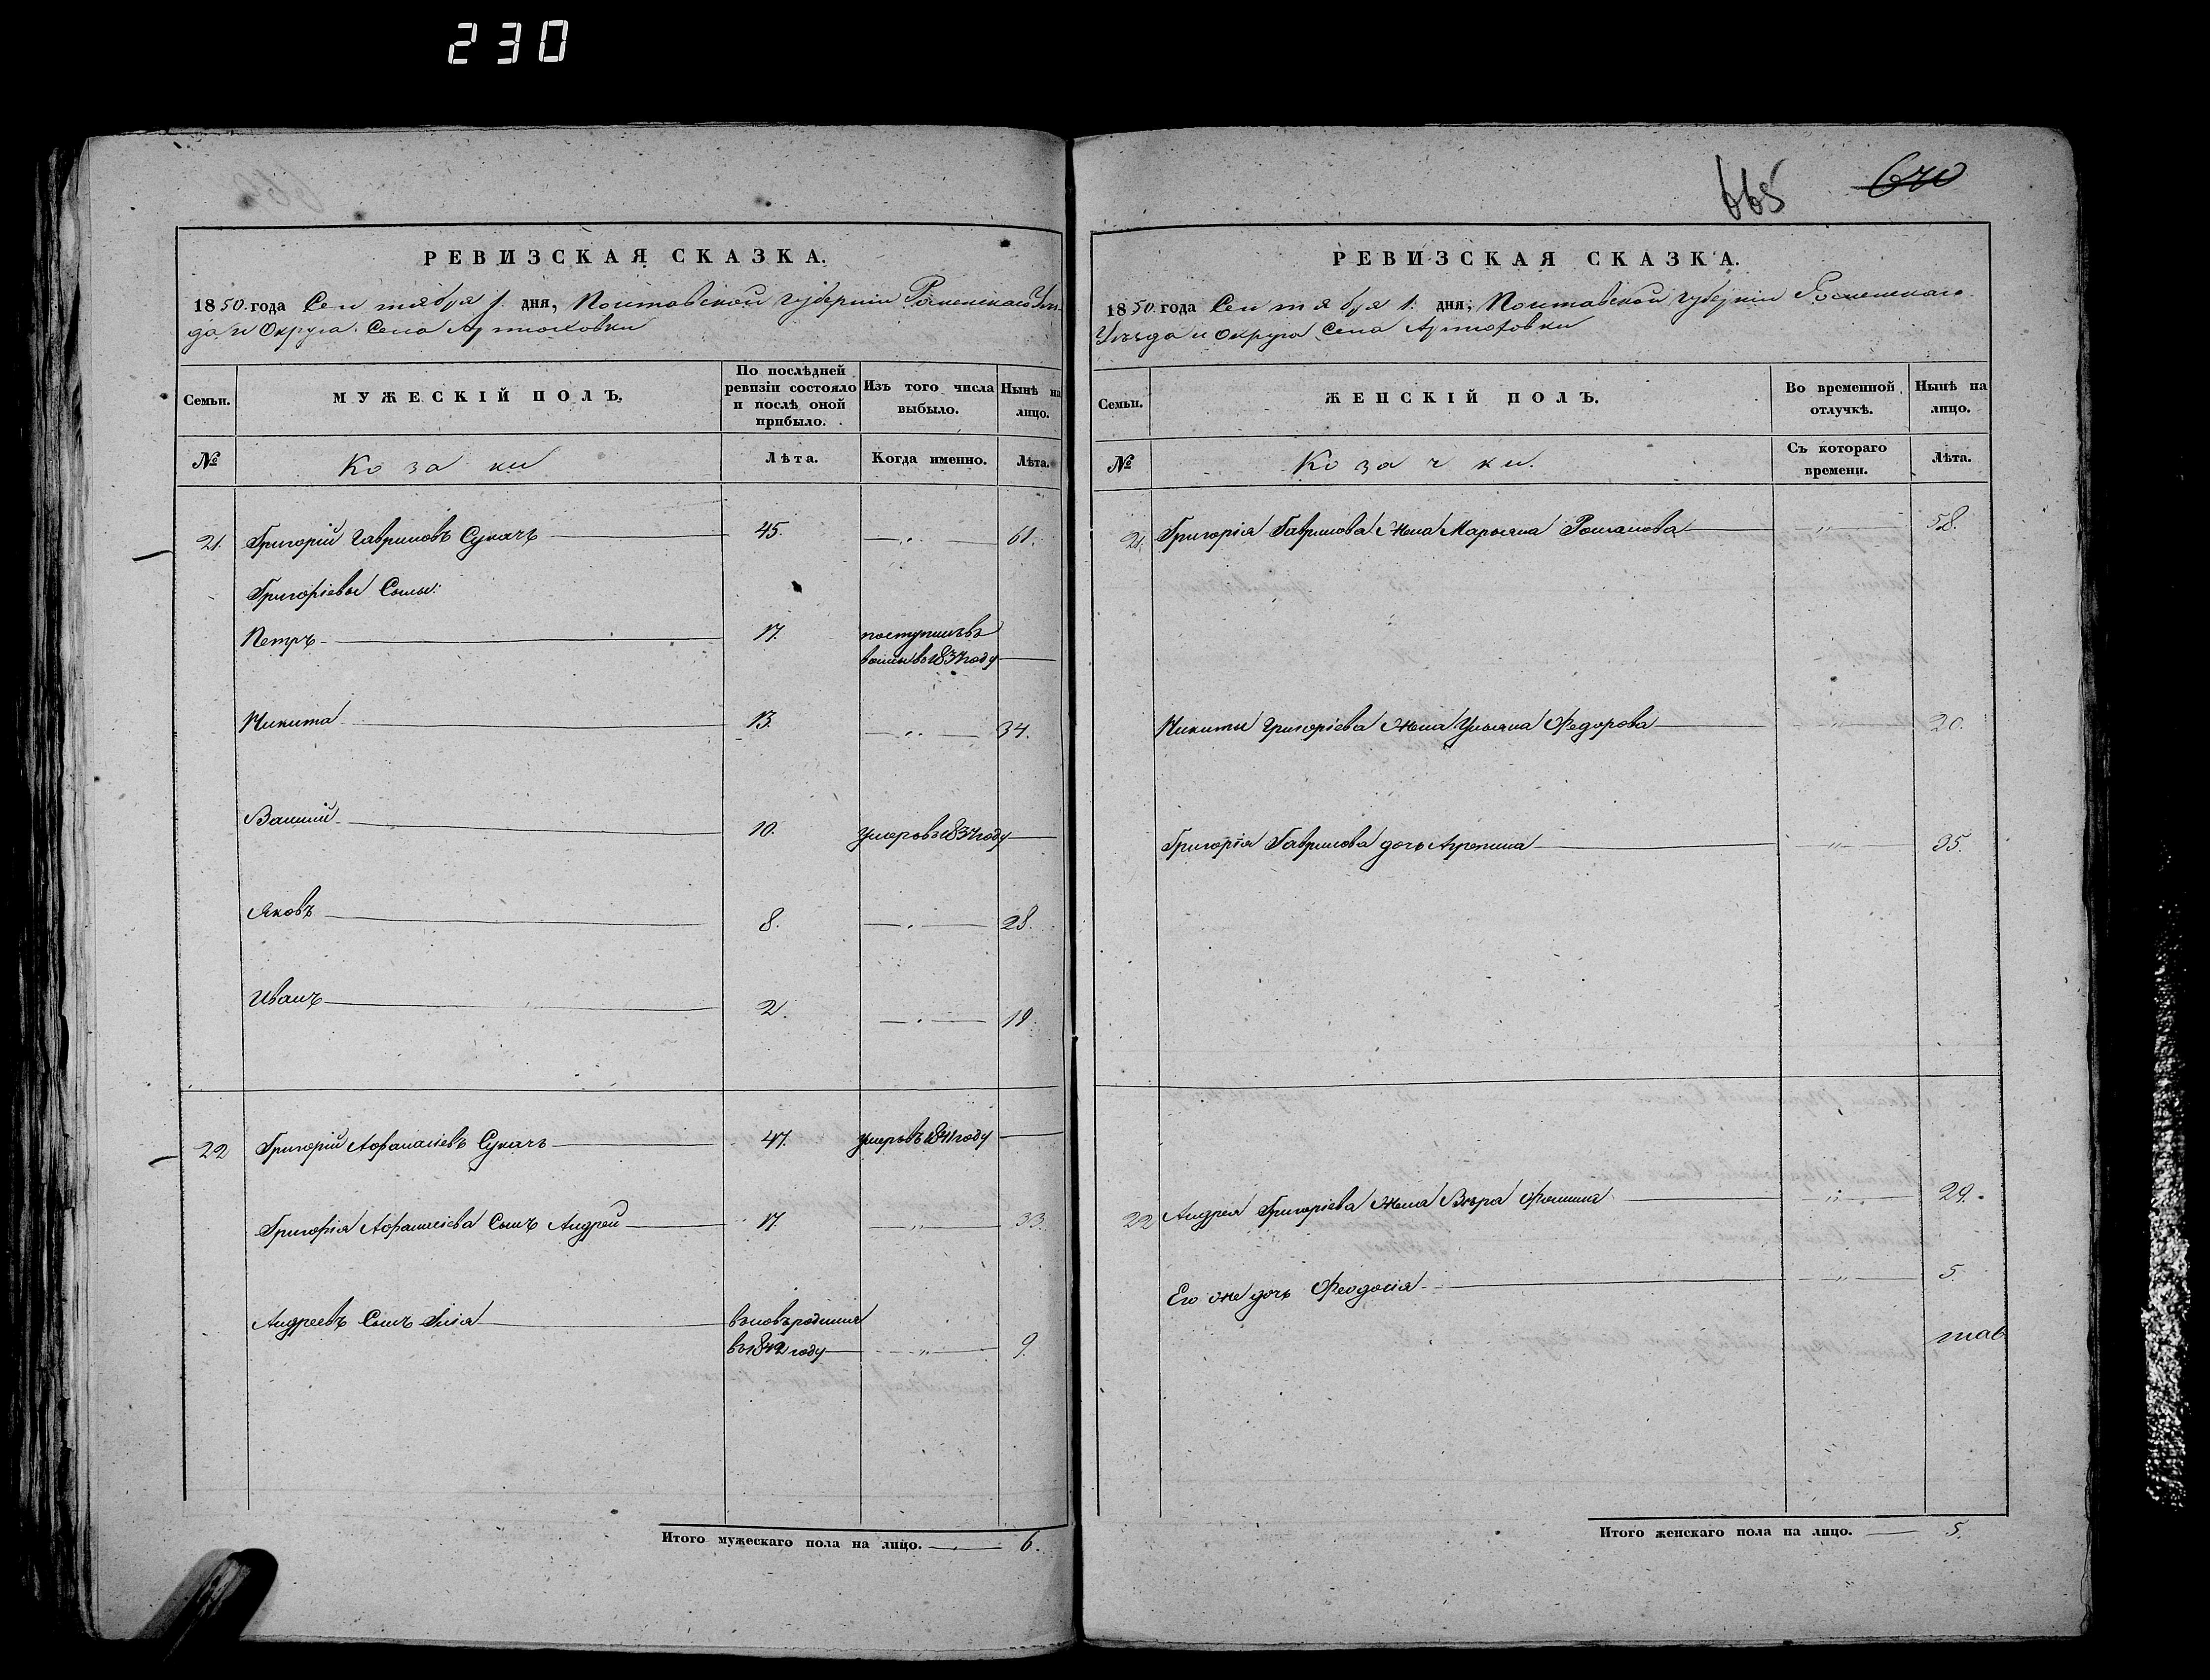 230
665 640
РЕВИЗСКАЯ СКАЗКА.
1850. года Сентября 1. дня, Полтавской губерніи Роменскаго Уѣз-
да и Округа. Села Артюховки
Семьи.
МУЖЕСКІЙ ПОЛЪ.
По послѣдней ревизіи состояло и послѣ оной прибыло.
Изъ того числа выбыло.
Нынѣ на лицо.
№
Козаки
Лѣта.
Когда именно.
Лѣта.
21. Григорій Гавриловъ Сукачъ 45. 61.
Григоріевы Сыны:
Петръ 17. поступилъ въ
въ 1837 году
Никита 13. 34.
Василій 10. умеръ въ 1837 году
Яковъ 8. 28.
Иванъ 2. 19.
22 Григорій Афанасіевъ Сукачъ 47. умеръ въ 1841 году
Григорія Афанасіева Сынъ Андрей 17. 33.
Андреевъ Сынъ Илія вновь родился
въ 1842 году 9.
Итого мужескаго пола на лицо. 6.
РЕВИЗСКАЯ СКАЗКА.
1850 года Сентября 1. дня, Полтавской губерніи Роменскаго
Уѣзда и Округа Села Артюховки
Семьи.
ЖЕНСКІЙ ПОЛЪ.
Во временной отлучкѣ.
Нынѣ на лицо.
№
Козачки.
Съ котораго времени.
Лѣта.
21. Григорія Гаврилова Жена Марьяна Романова " 58.
Никиты Григоріева Жена Ульяна Федорова " 20.
Григорія Гаврилова дочь Агрепина " 35.
22 Андрея Григоріева Жена Вѣра Фомина " 29.
Его же дочь Феодосія " 5.
Итого женскаго пола на лицо. 5.